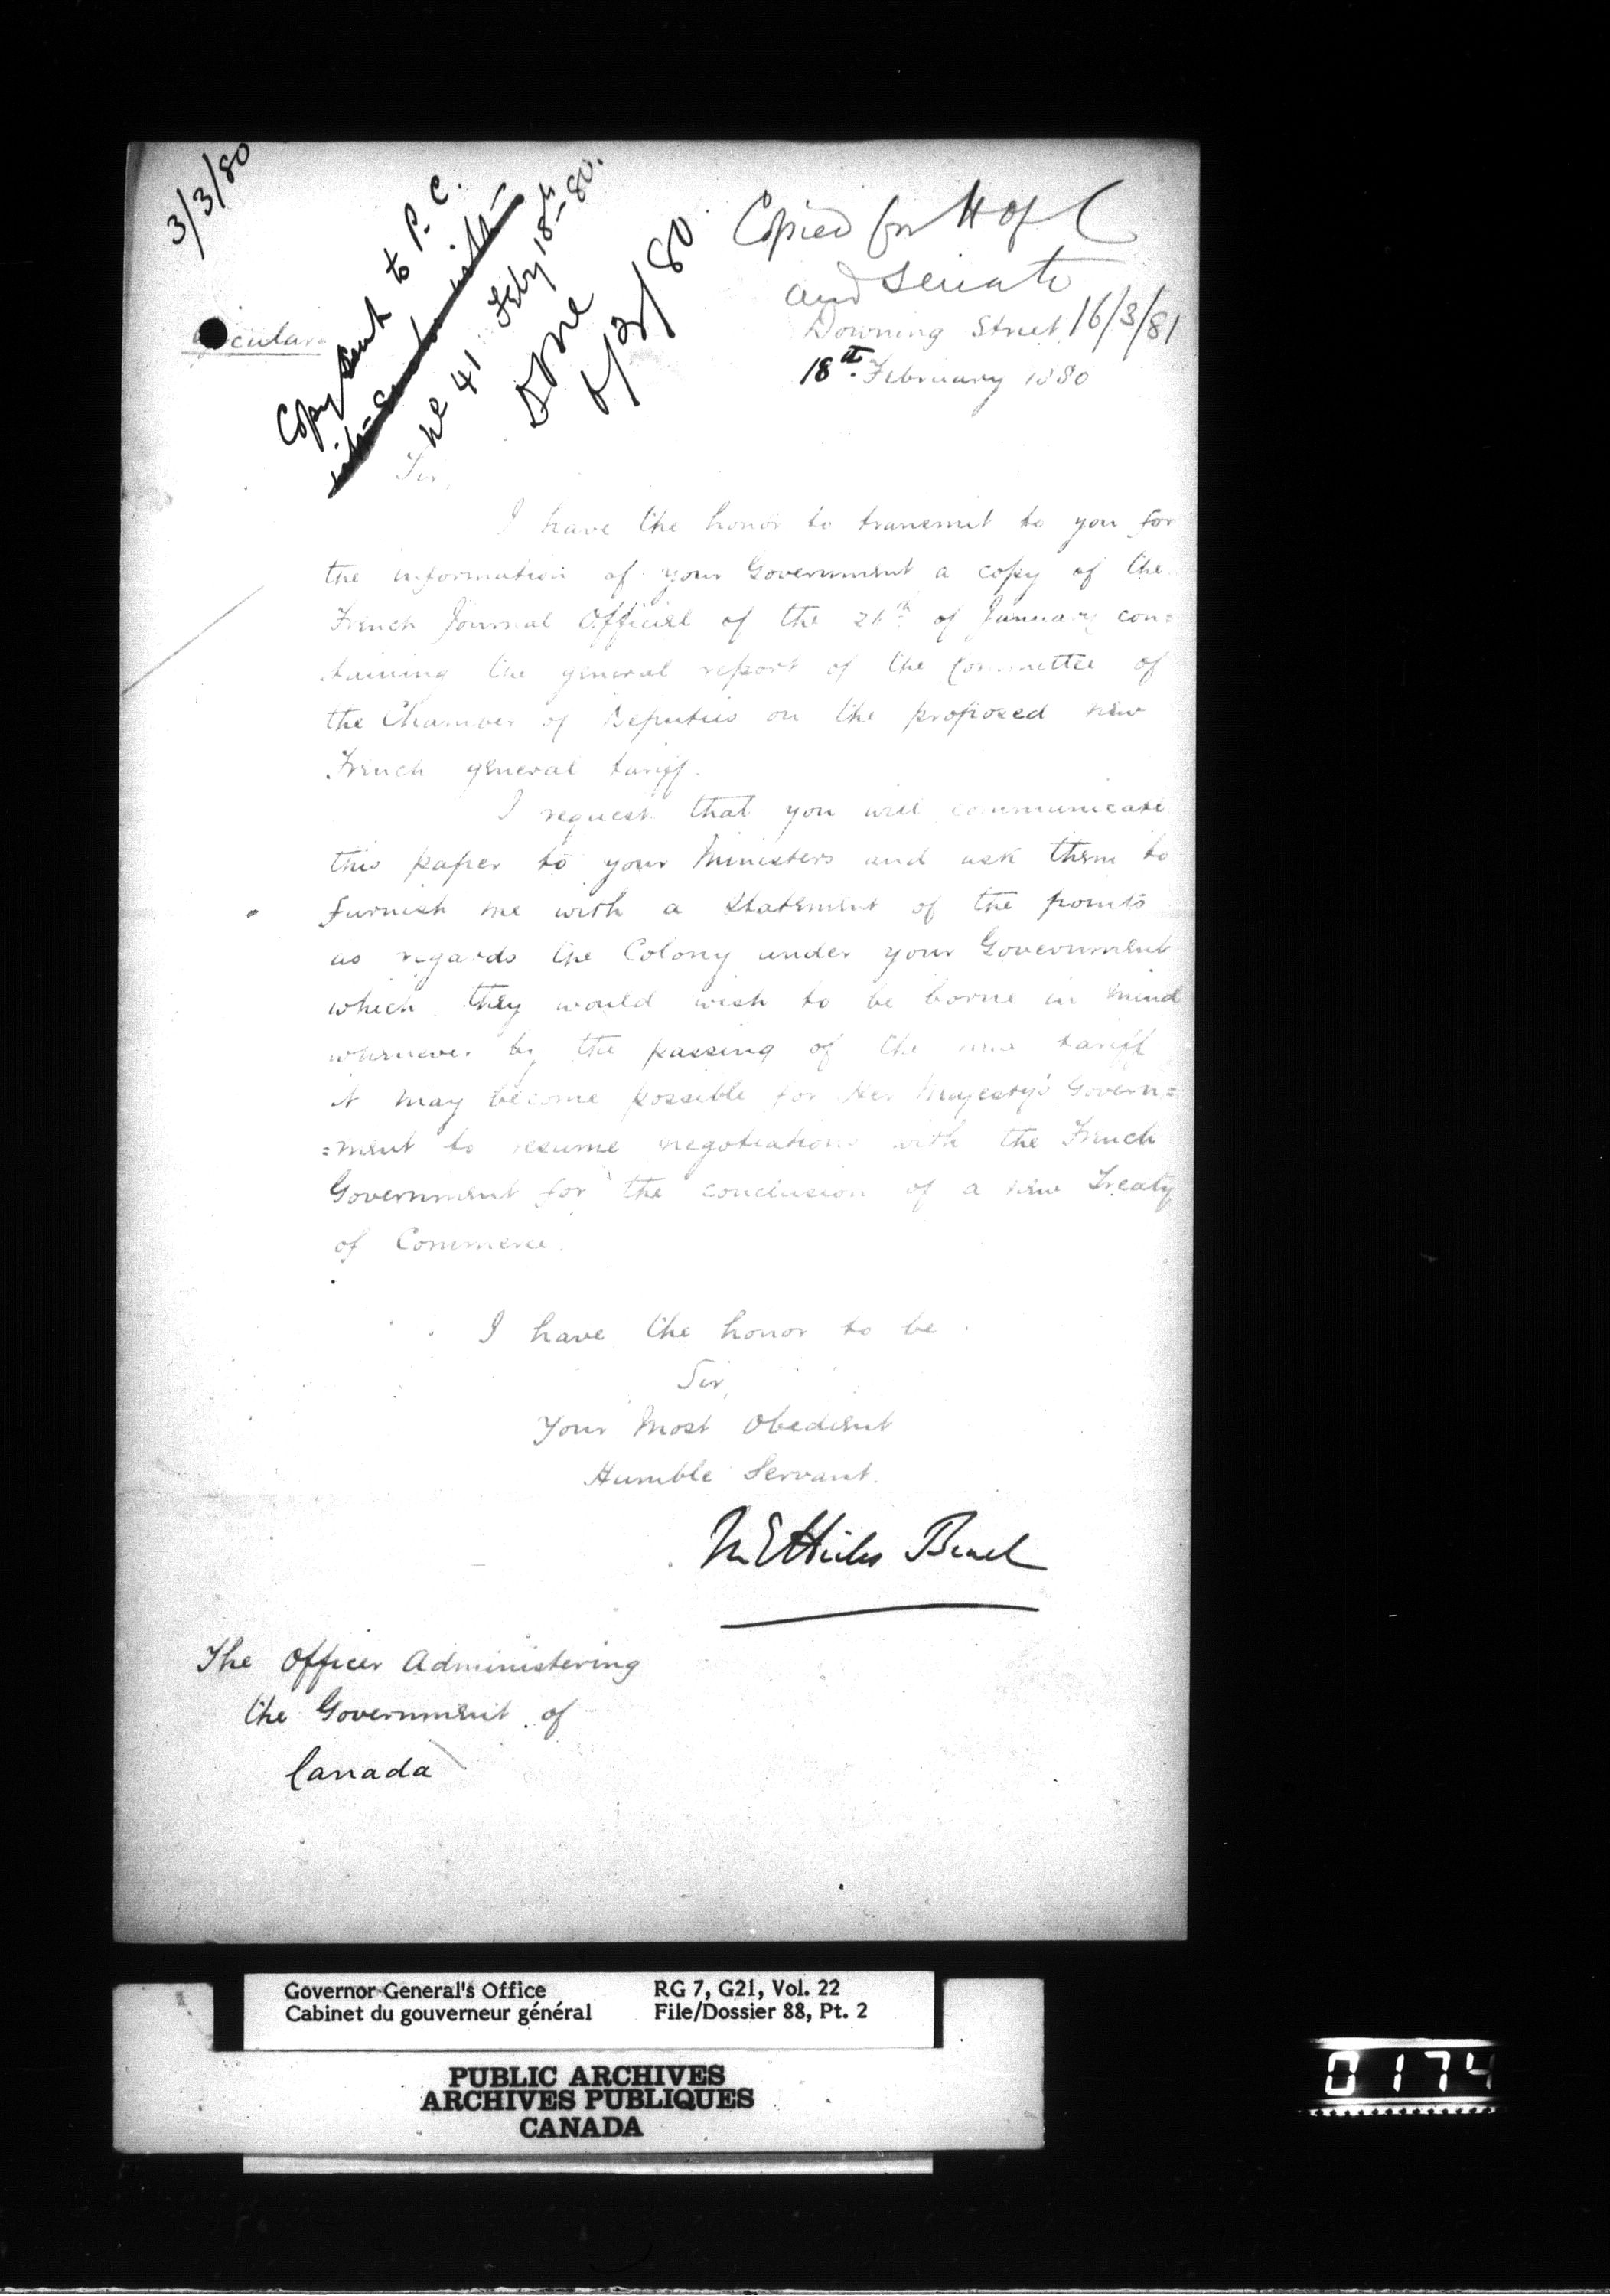 3/3/80
Copy sent to P. C.
No 41 Feby 18th - 80.
Done
Copied for H of C
and Senate
16/3/81
Circular
Downing Street
18th February 1880
Sir,
I have the honor to transmit to you for
the information of your Government a copy of the
French Journal Officiel of the 26th of January con=
taining the general report of the Committee of
the Chamber of Deputies on the proposed new
French general tariff.
I request that you will communicate
this paper to your Ministers and ask them to
furnish me with a statement of the points
as regards the Colony under your Government
which they would wish to be borne in mind
whenever by the passing of the new tariff
it may become possible for Her Majesty's Govern=
=ment to resume negotiations with the French
Government for the conclusion of a new Treaty
of Commerce.
I have the honor to be
Sir,
Your Most Obedient
Humble Servant.
M E Hicks Beach
The Officer Administering
the Government of
Canada
Governor General's Office RG 7, G21, Vol. 22
Cabinet du gouverneur général File/Dossier 88, Pt. 2
PUBLIC ARCHIVES
ARCHIVES PUBLIQUES
CANADA
0174